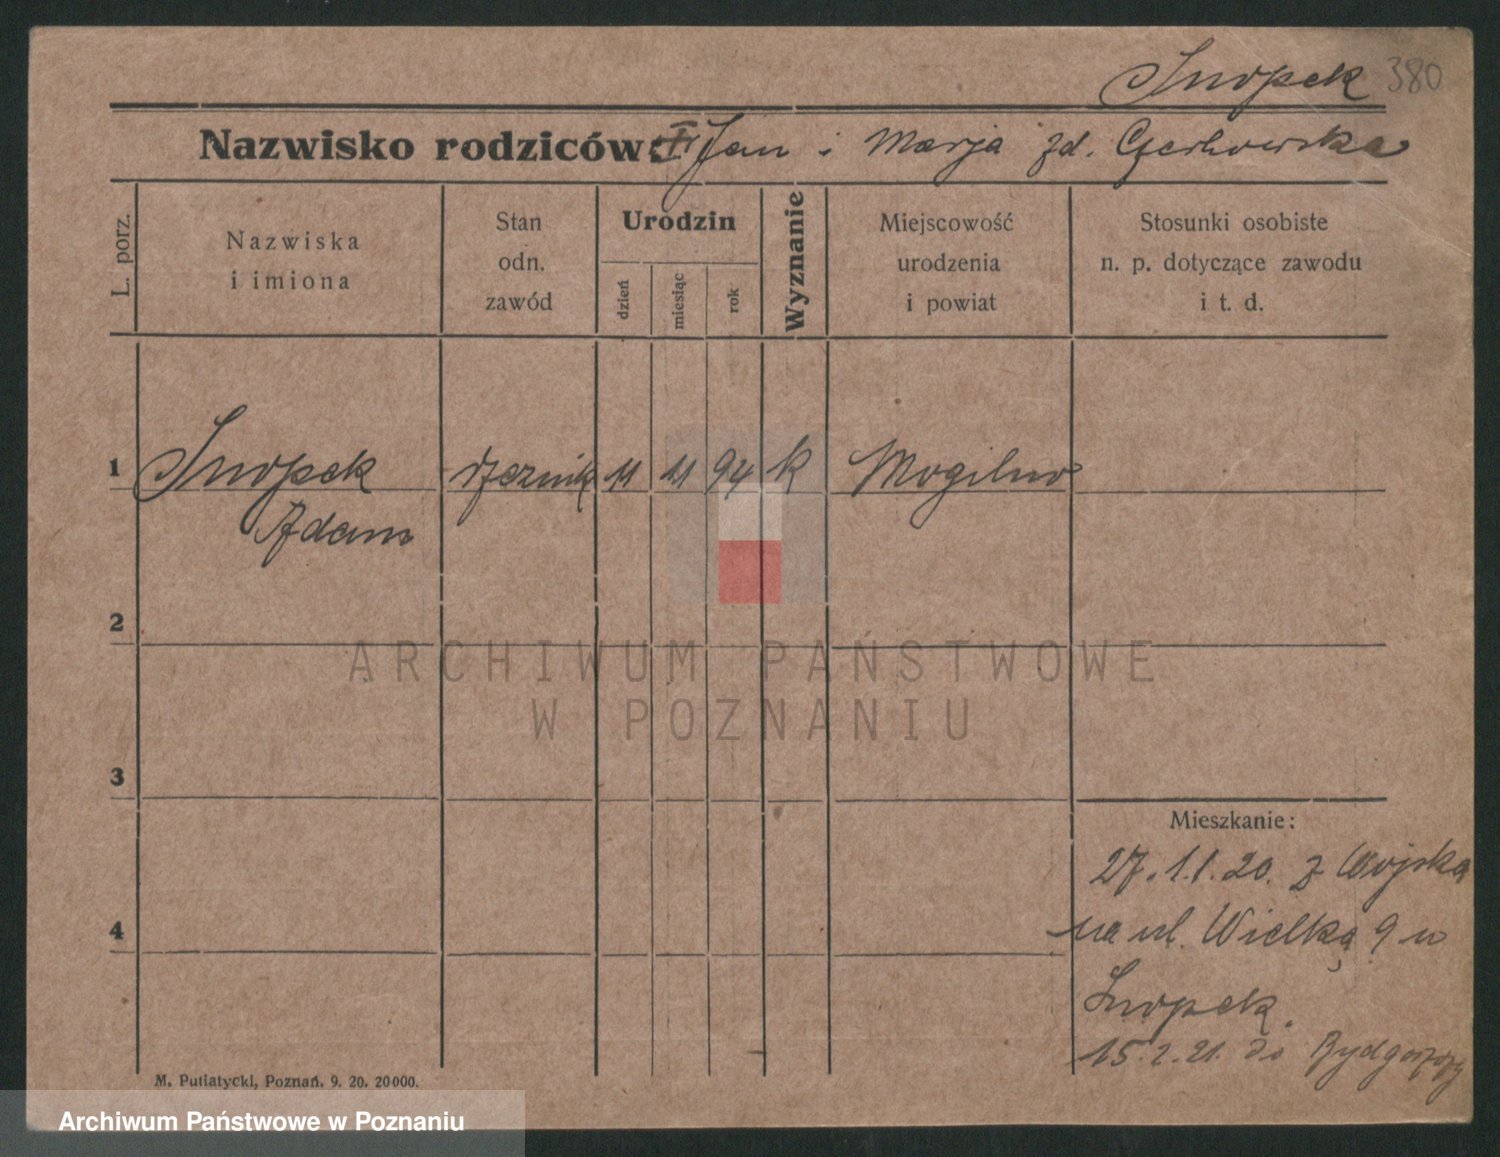 Snopek 380
Nazwisko rodziców: Jan i Marja zd.
L. porz.
Nazwiska
i imiona
Stan
odn.
zawód
Urodzin
dzień
miesiąc
rok
Wyznanie
Miejscowość
urodzenia
i powiat
Stosunki osobiste
n. p. dotyczące zawodu
i t. d.
1 Snopek rzeźnik 11 11 94 k Mogilno
Adam
2
ARCHIWUM PAŃSTWOWE
W POZNANIU
3
Mieszkanie:
27.11.20. z Wojska
4
na ul. Wielką 9 u
Snopek.
15.2.21. do Bydgoszczy
M. Putiatycki, Poznań. 9. 20. 20000.
Archiwum Państwowe w Poznaniu